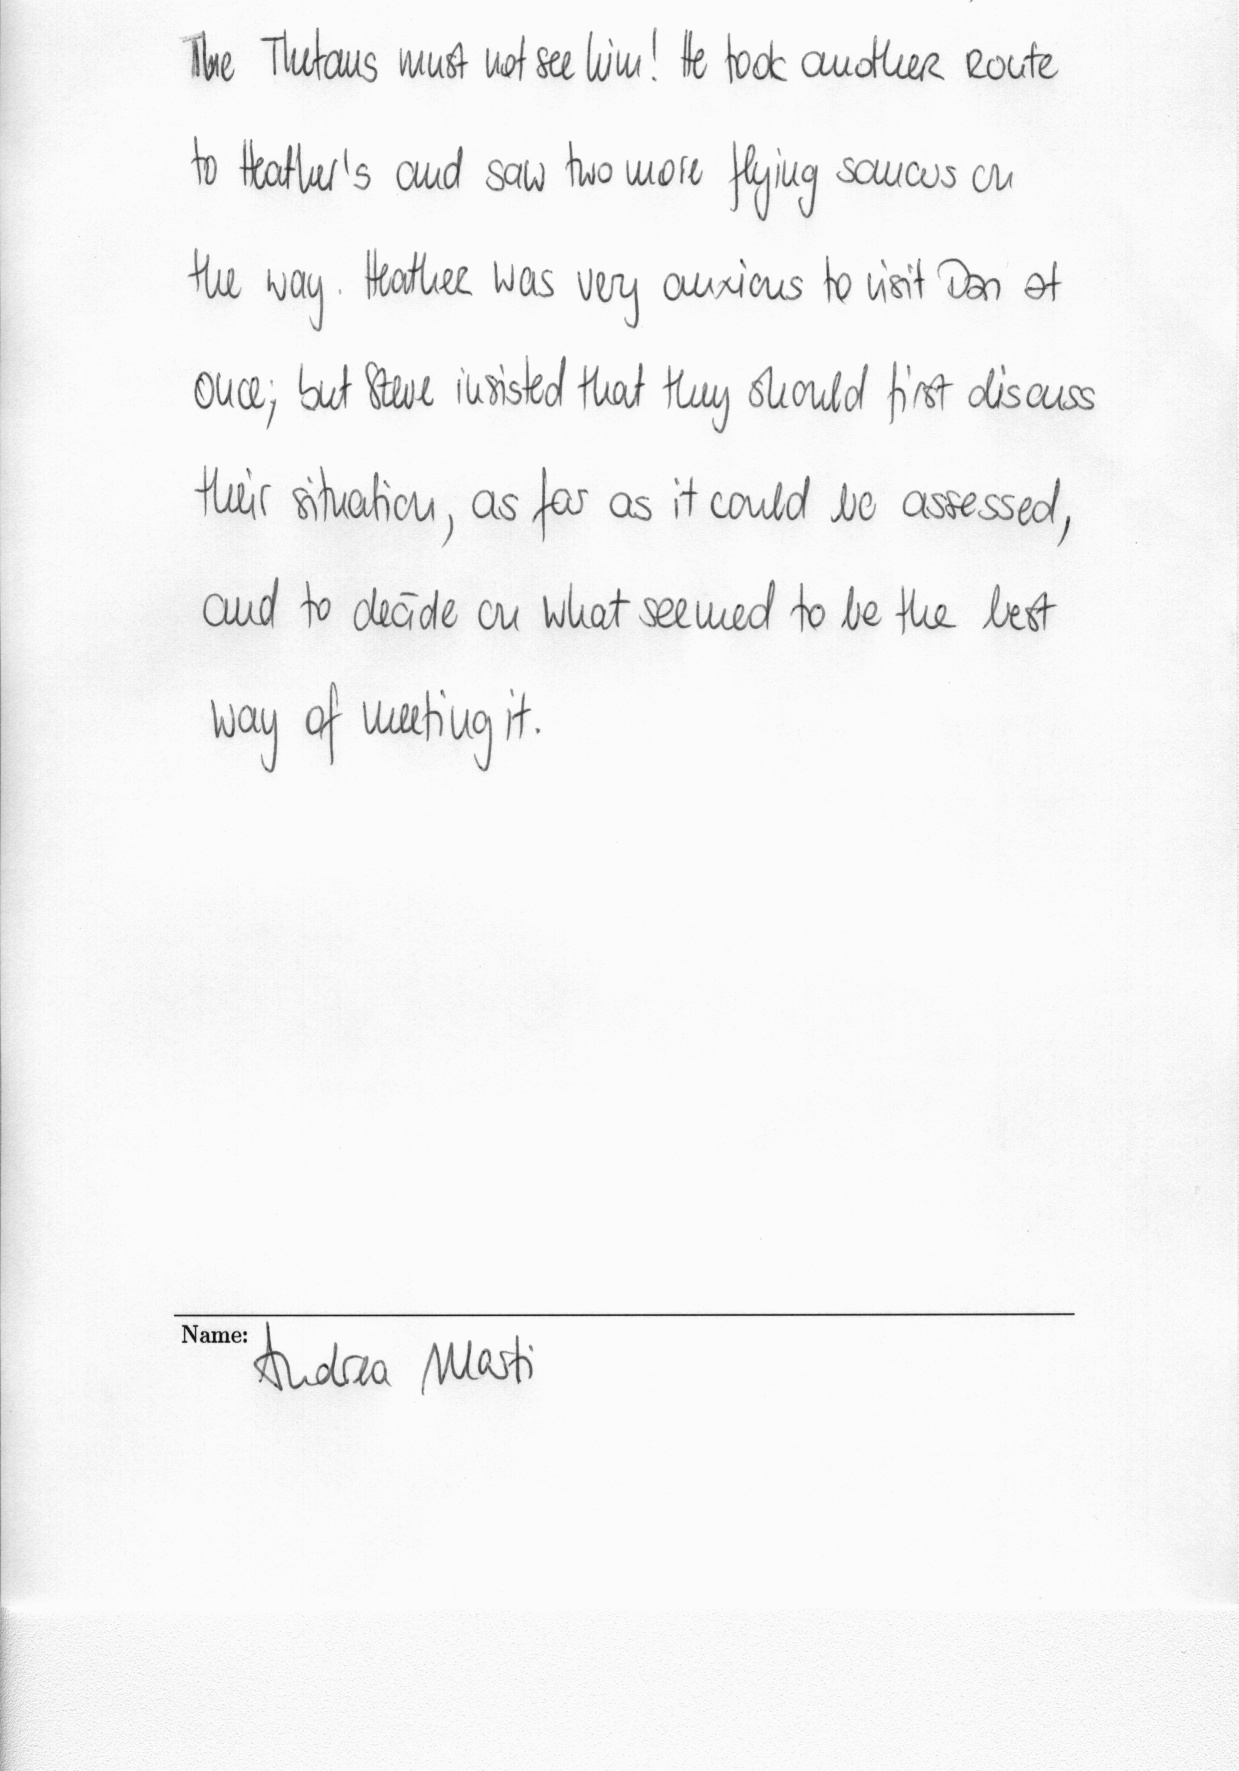 The Thetans must not see him! He took another route
to Heather's and saw two more flying saucers on
the way. Heather was very anxious to visit Dan at
once; but Steve insisted that they should first discuss
their situation, as far as it could be assessed,
and to decide on what seemed to be the best
way of meeting it.
Name:
Andrea Masti